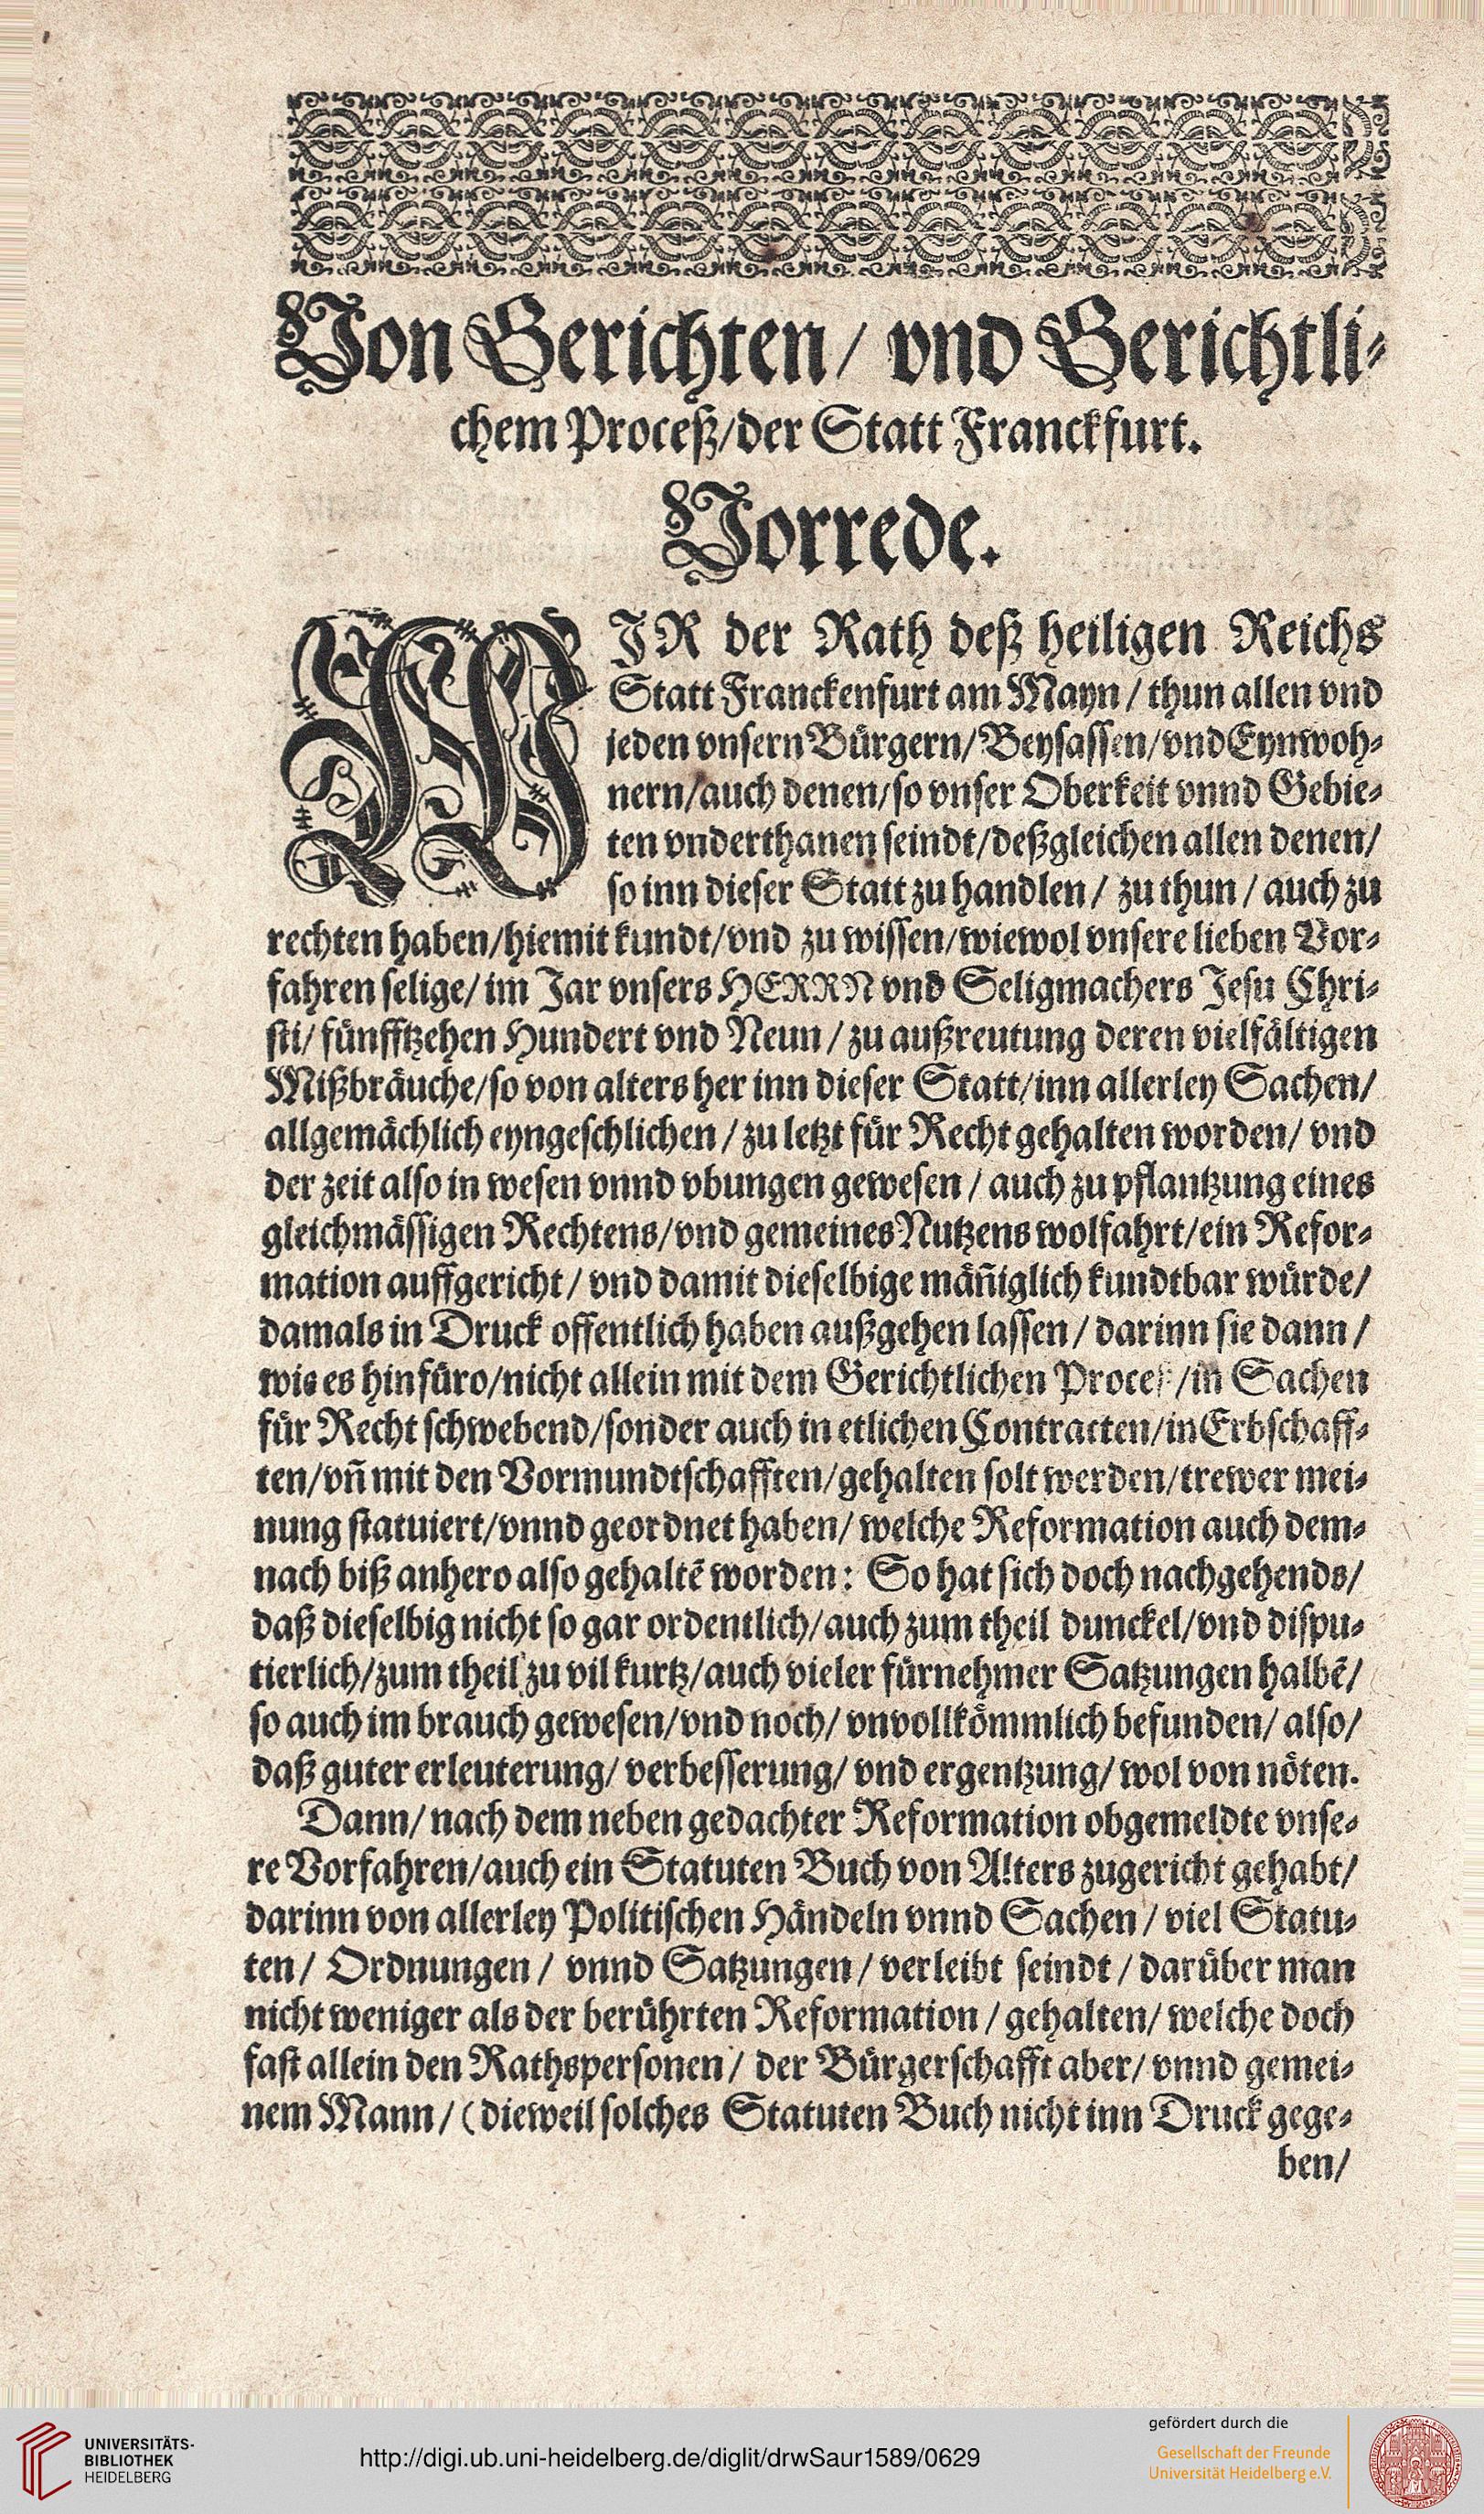 Von Gerichten/ vnd Gerichtli⸗
chem Proceß/der Statt Franckfurt.
Vorrede.
WIR der Rath deß heiligen Reichs
Statt Franckenfurt am Mayn / thun allen vnd
jeden vnsern Bürgern/Beysassen/vnd Eynwoh⸗
nern/auch denen/so vnser Oberkeit vnnd Gebie⸗
ten vnderthanen seindt/deßgleichen allen denen/
so inn dieser Statt zu handlen / zu thun / auch zu
rechten haben/hiemit kundt/vnd zu wissen/wiewol vnsere lieben Vor⸗
fahren selige/ im Jar vnsers HERRN vnd Seligmachers Jesu Chri⸗
sti/ fünfftzehen Hundert vnd Neun / zu außreutung deren vielfältigen
Mißbräuche/so von alters her inn dieser Statt/inn allerley Sachen/
allgemächlich eyngeschlichen / zu letzt für Recht gehalten worden/ vnd
der zeit also in wesen vnnd vbungen gewesen / auch zu pflantzung eines
gleichmässigen Rechtens/vnd gemeines Nutzens wolfahrt/ein Refor⸗
mation auffgericht/ vnd damit dieselbige mäñiglich kundtbar würde/
damals in Druck offentlich haben außgehen lassen / darinn sie dann /
wie es hinfüro/nicht allein mit dem Gerichtlichen Proceß/in Sachen
für Recht schwebend/sonder auch in etlichen Contracten/in Erbschaff⸗
ten/vñ mit den Vormundtschafften/gehalten solt werden/trewer mei⸗
nung statuiert/vnnd geordnet haben/ welche Reformation auch dem⸗
nach biß anhero also gehaltẽ worden: So hat sich doch nachgehends/
daß dieselbig nicht so gar ordentlich/auch zum theil dunckel/vnd dispu⸗
tierlich/zum theil zu vil kurtz/auch vieler fürnehmer Satzungen halbẽ/
so auch im brauch gewesen/vnd noch/ vnvollkömmlich befunden/ also/
daß guter erleuterung/ verbesserung/ vnd ergentzung/ wol von nöten.
Dann/ nach dem neben gedachter Reformation obgemeldte vnse⸗
re Vorfahren/auch ein Statuten Buch von Alters zugericht gehabt/
darinn von allerley Politischen Händeln vnnd Sachen / viel Statu⸗
ten/ Ordnungen / vnnd Satzungen / verleibt seindt / darüber man
nicht weniger als der berührten Reformation / gehalten/ welche doch
fast allein den Rathspersonen / der Bürgerschafft aber/ vnnd gemei⸗
nem Mann / (dieweil solches Statuten Buch nicht inn Druck gege⸗
ben/
UNIVERSITÄTS-
BIBLIOTHEK
HEIDELBERG
http://digi.ub.uni-heidelberg.de/diglit/drwSaur1589/0629
gefördert durch die
Gesellschaft der Freunde
Universität Heidelberg e.V.